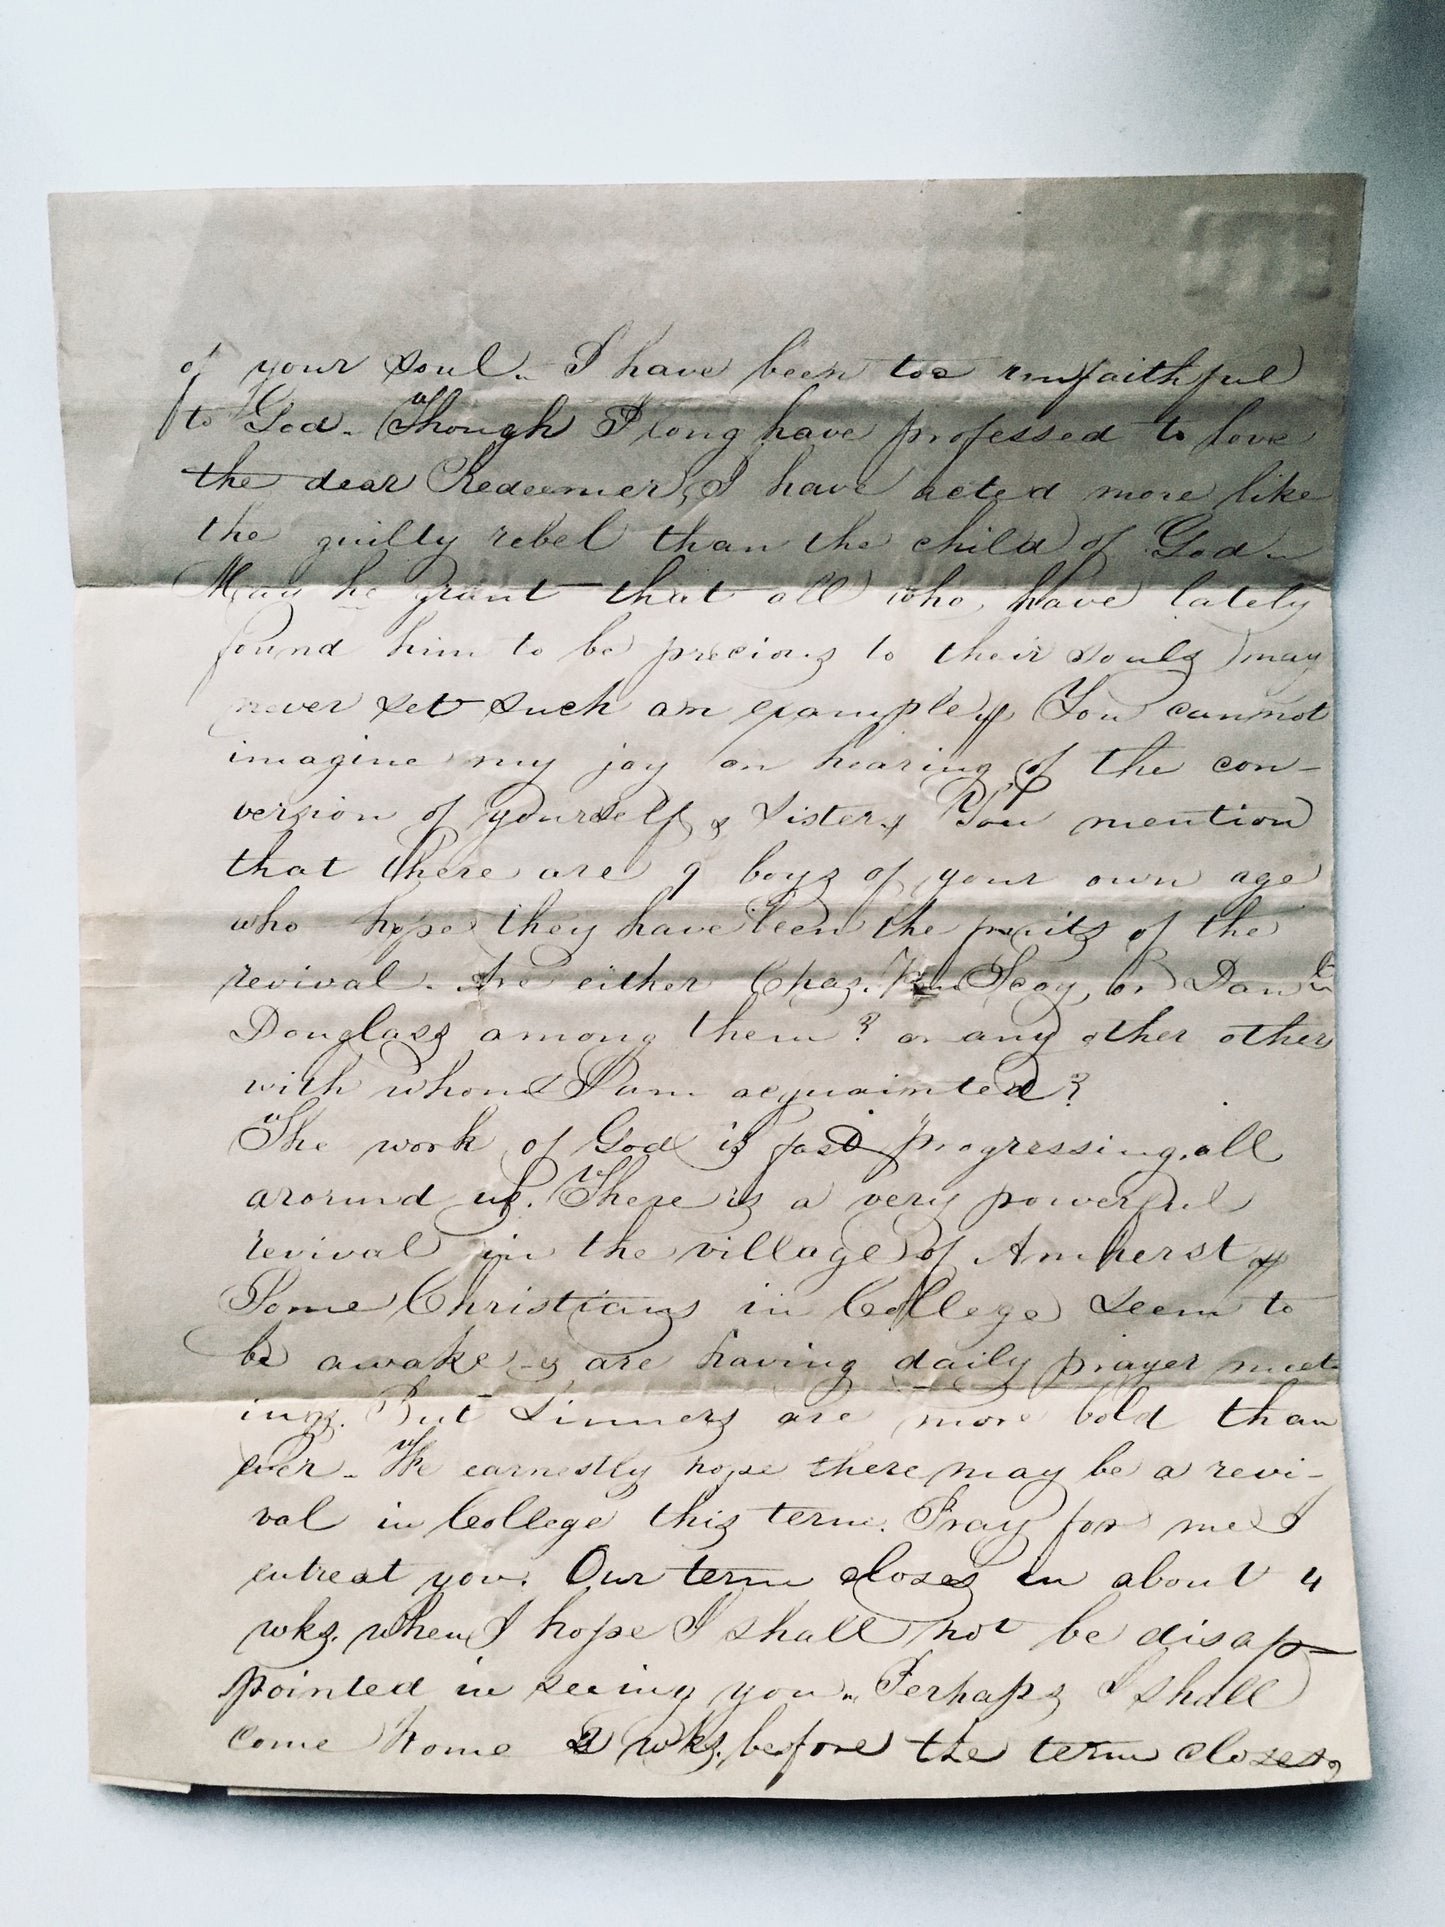 of your soul. I have been too unfaithful
to God. Though I long have professed to love
the dear Redeemer, I have acted more like
the guilty rebel than the child of God.
May he grant that all who have lately
found him to be precious to their souls may
never set such an example. You cannot
imagine my joy on hearing of the con-
version of yourself & Sister. You mention
that there are 9 boys of your own age
who hope they have been the fruits of the
revival. Are either Chas. or Danl
Douglass among them? or any other other
with whom I am acquainted?
The work of God is fast progressing all
around us. There is a very powerful
revival in the village of Amherst
Some Christians in College seem to
be awake & are having daily prayer meet-
ings. But Sinners are more bold than
ever. We earnestly hope there may be a revi-
val in College this term. Pray for me I
entreat you. Our term closes in about 4
wks. when I hope I shall not be disap-
pointed in seeing you. Perhaps I shall
come home 2 wks. before the term closes,